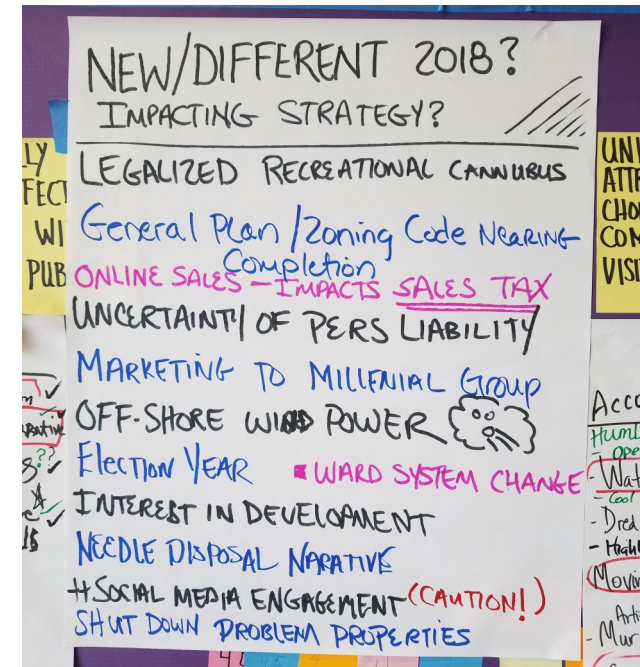 NEW/DIFFERENT 2018?
IMPACTING STRATEGY?
LEGALIZED RECREATIONAL CANNUBUS
General Plan/Zoning Code NEARING
Completion
ONLINE SALES - IMPACTS SALES TAX
UNCERTAINTY OF PERS LIABILITY
MARKETING TO MILLENIAL Group
OFF-SHORE WIND POWER
ELECTION YEAR ▪ WARD SYSTEM CHANGE
INTEREST IN DEVELOPMENT
NEEDLE DISPOSAL NARATIVE
#SOCIAL MEDIA ENGAGEMENT (CAUTION!)
SHUT DOWN PROBLEM PROPERTIES
LY
FECT
WI
PUB
UNI
ATTR
CHO
COM
VISI
Acco
Huml
- ope
- Wat
- Cool
- Drea
- Highl
Movin
Arti
- Mur